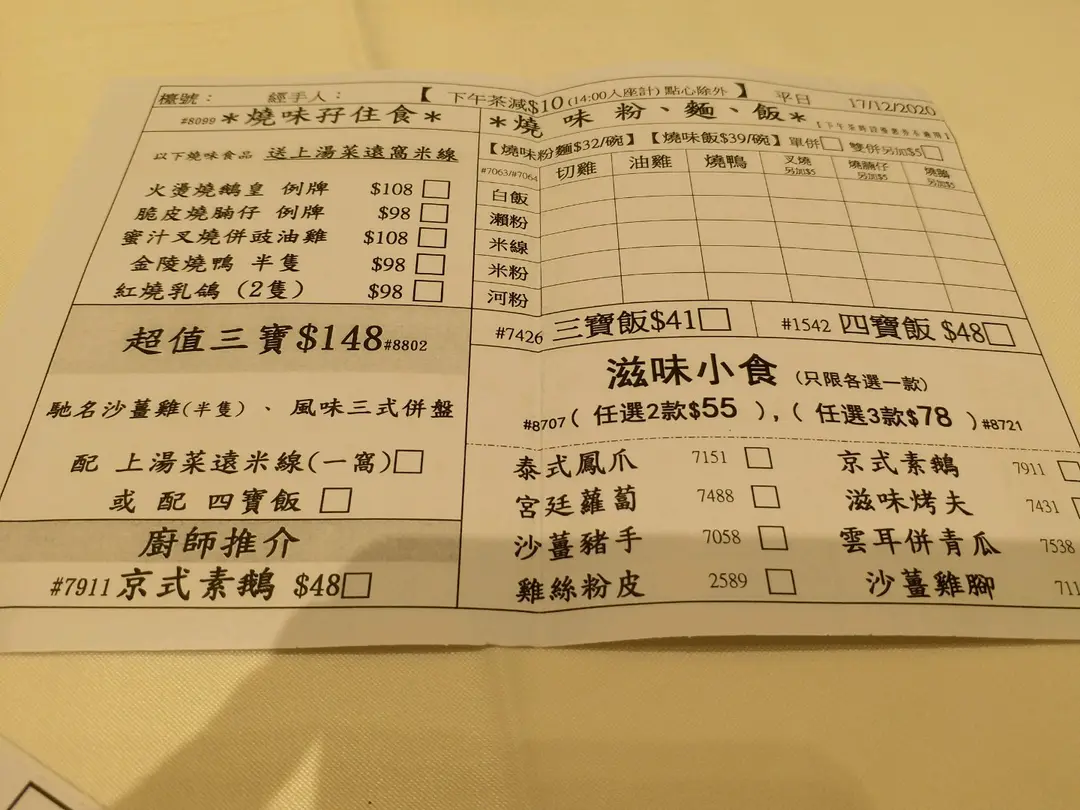 檯號： 經手人： 【 下午茶減$10 (14:00入座計) 點心除外 】 平日 17/12/2020
#8099 *燒味孖住食*
以下燒味食品 送上湯菜遠窩米線
火燙燒鵝皇 例牌 $108 □
脆皮燒腩仔 例牌 $98 □
蜜汁叉燒併豉油雞 $108 □
金陵燒鴨 半隻 $98 □
紅燒乳鴿 (2隻) $98 □
超值三寶$148 #8802
馳名沙薑雞(半隻) 、 風味三式併盤
配 上湯菜遠米線(一窩)□
或 配 四寶飯 □
廚師推介
#7911 京式素鵝 $48□
*燒 味 粉、麵、飯*
【燒味粉麵$32/碗】【燒味飯$39/碗】 單併□ 雙併另加$5□
#7063/#7064 切雞 油雞 燒鴨 叉燒 另加$5 燒腩仔 另加$5 燒鵝 另加$5
白飯
瀨粉
米線
米粉
河粉
#7426 三寶飯$41□ #1542 四寶飯 $48□
滋味小食 (只限各選一款)
#8707 ( 任選2款$55 ) , ( 任選3款$78 ) #8721
泰式鳳爪 7151 □ 京式素鵝 7911 □
宮廷蘿蔔 7488 □ 滋味烤夫 7431 □
沙薑豬手 7058 □ 雲耳併青瓜 7538
雞絲粉皮 2589 □ 沙薑雞腳 711